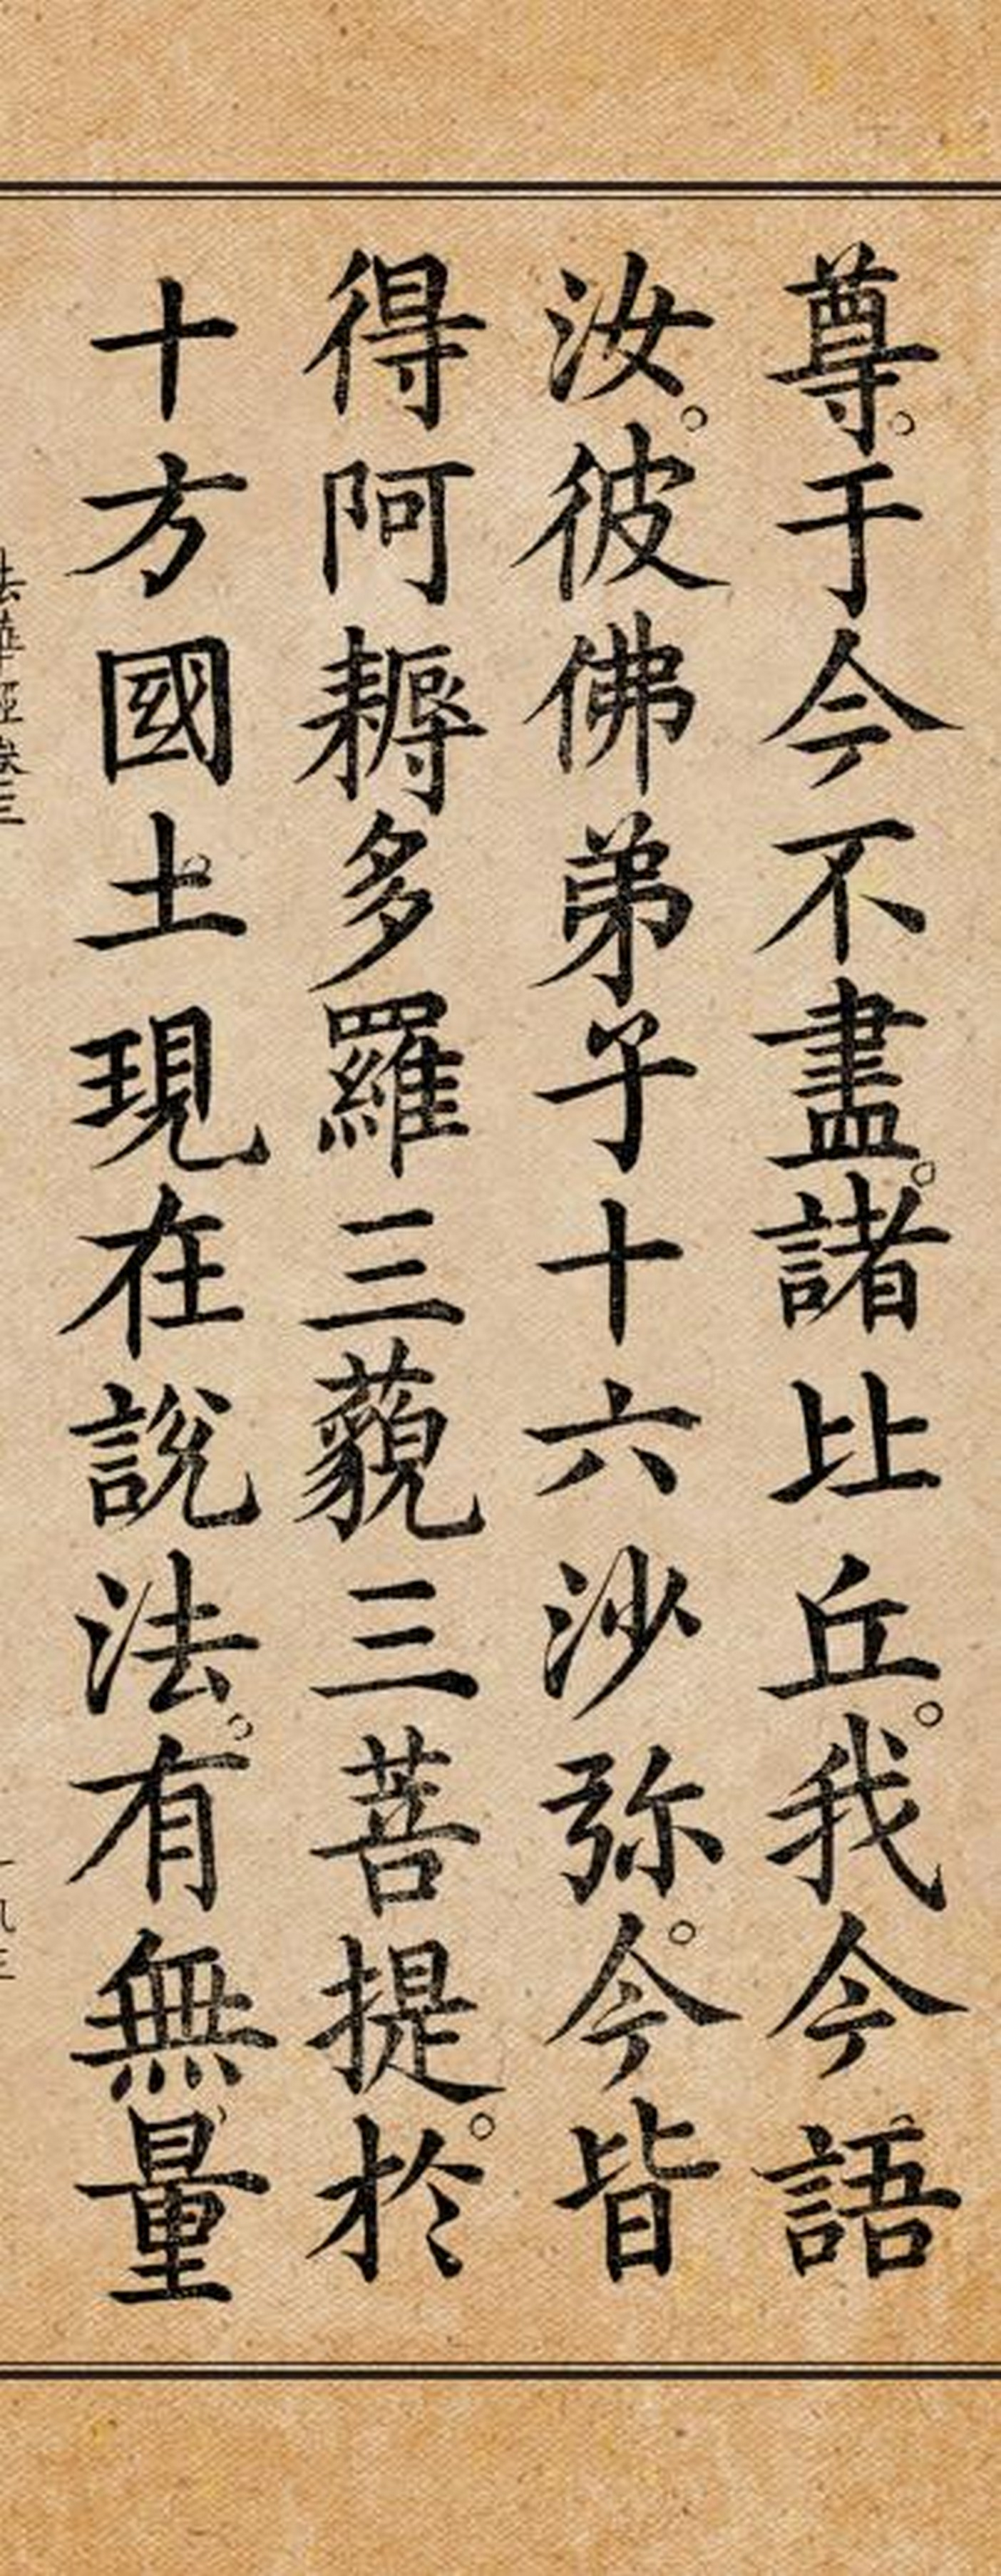 尊。于今不盡。諸比丘。我今語
汝。彼佛弟子十六沙弥。今皆
得阿耨多羅三藐三菩提。於
十方國土現在說法。有無量
法華經卷三